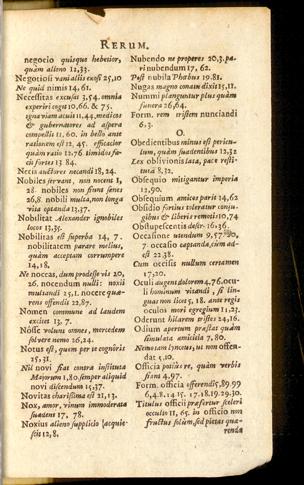 RERUM.
negocio quisque hebetior,
quàm alieno 12,33.
Negotiosi vani aliis exosi 25,10
Ne quid nimis 14,61.
Necessitas excusat 3,54. omnia
experiri cogit 10,66. & 75.
ignaviam acuit 11,44. medicos
& gubernatores ad aspera
compellit 11, 60. in bello ante
rationem est 12, 45. efficacior
quàm ratio 12.76 timidos facit
fortes 13 84.
Necis auctores necandi 18, 24.
Nobiles servant, non nocent 1,
28. nobiles non sunt senes
26,8. nobili multa, non longa
vita optanda 13,37.
Nobilitat Alexander ignobiles
locos 13,3.
Nobilitas est superba 14, 7.
nobilitatem parare melius,
quàm acceptam corrumpere
14,18.
Ne noceas, dum prodesse vis 20,
26. nocendum nulli: noxii
multandi 25,1. nocere quærens
offendit 22,87.
Nomen commune ad laudem
excitet 13, 7.
Nosse volunt omnes, mercedem
solvere nemo 26,24.
Notus est, quem per te cognoris
15,31.
Nil novi fiat contra instituta
Majorum 1,80. semper aliquid
novi dicendum 15,37.
Novitas charissima est 21,13.
Nox, amor, vinum immoderata
suadent 17, 78.
Noxius alieno supplicio
12,8,
Nubendo ne properes 20.3. pavi
nubendum 17, 62.
Nugas magno conatu dixit 15,11.
Nummi plangentur plus quàm
funera 26,64.
Form. rem tristem nunciandi
6.3.
O.
Obedientibus minus est periculum,
quàm suadentibus 12,32
Lex oblivionis lata, pace restituta
8,12.
Obsequio mitigantur imperia
12,90.
Obsequium amicos parit 14,62
Obsidio fortius toleratur conjugibus
& liberis remotis 10,74
Obstupescentis descr. 16.36.
Occasione utendum 9, 57.
7. occasio captanda, cùm adest
22.38.
Cum occisis nullum certamen
17,20.
Oculi augent dolorem 4,76. oculi
hominum vitandi, si linguas
non licet 5, 18. ante regis
oculos mori egregium 11.23.
Oderunt hilarem tristes 24,16.
Odium apertum præstat quàm
simulata amicitia 7,80.
Nemo tam lynceus, ut non offendat
5,10.
Officia potius re, quàm verbis
fiant 4.97.
Form. officia offerendi 5, 89.99
6,4.8.14.15. 17.18.19.29.30.
Titulus officii præfertur sceleri
occulto 11, 65. in officio non
fructus solùm, sed pietas quærenda